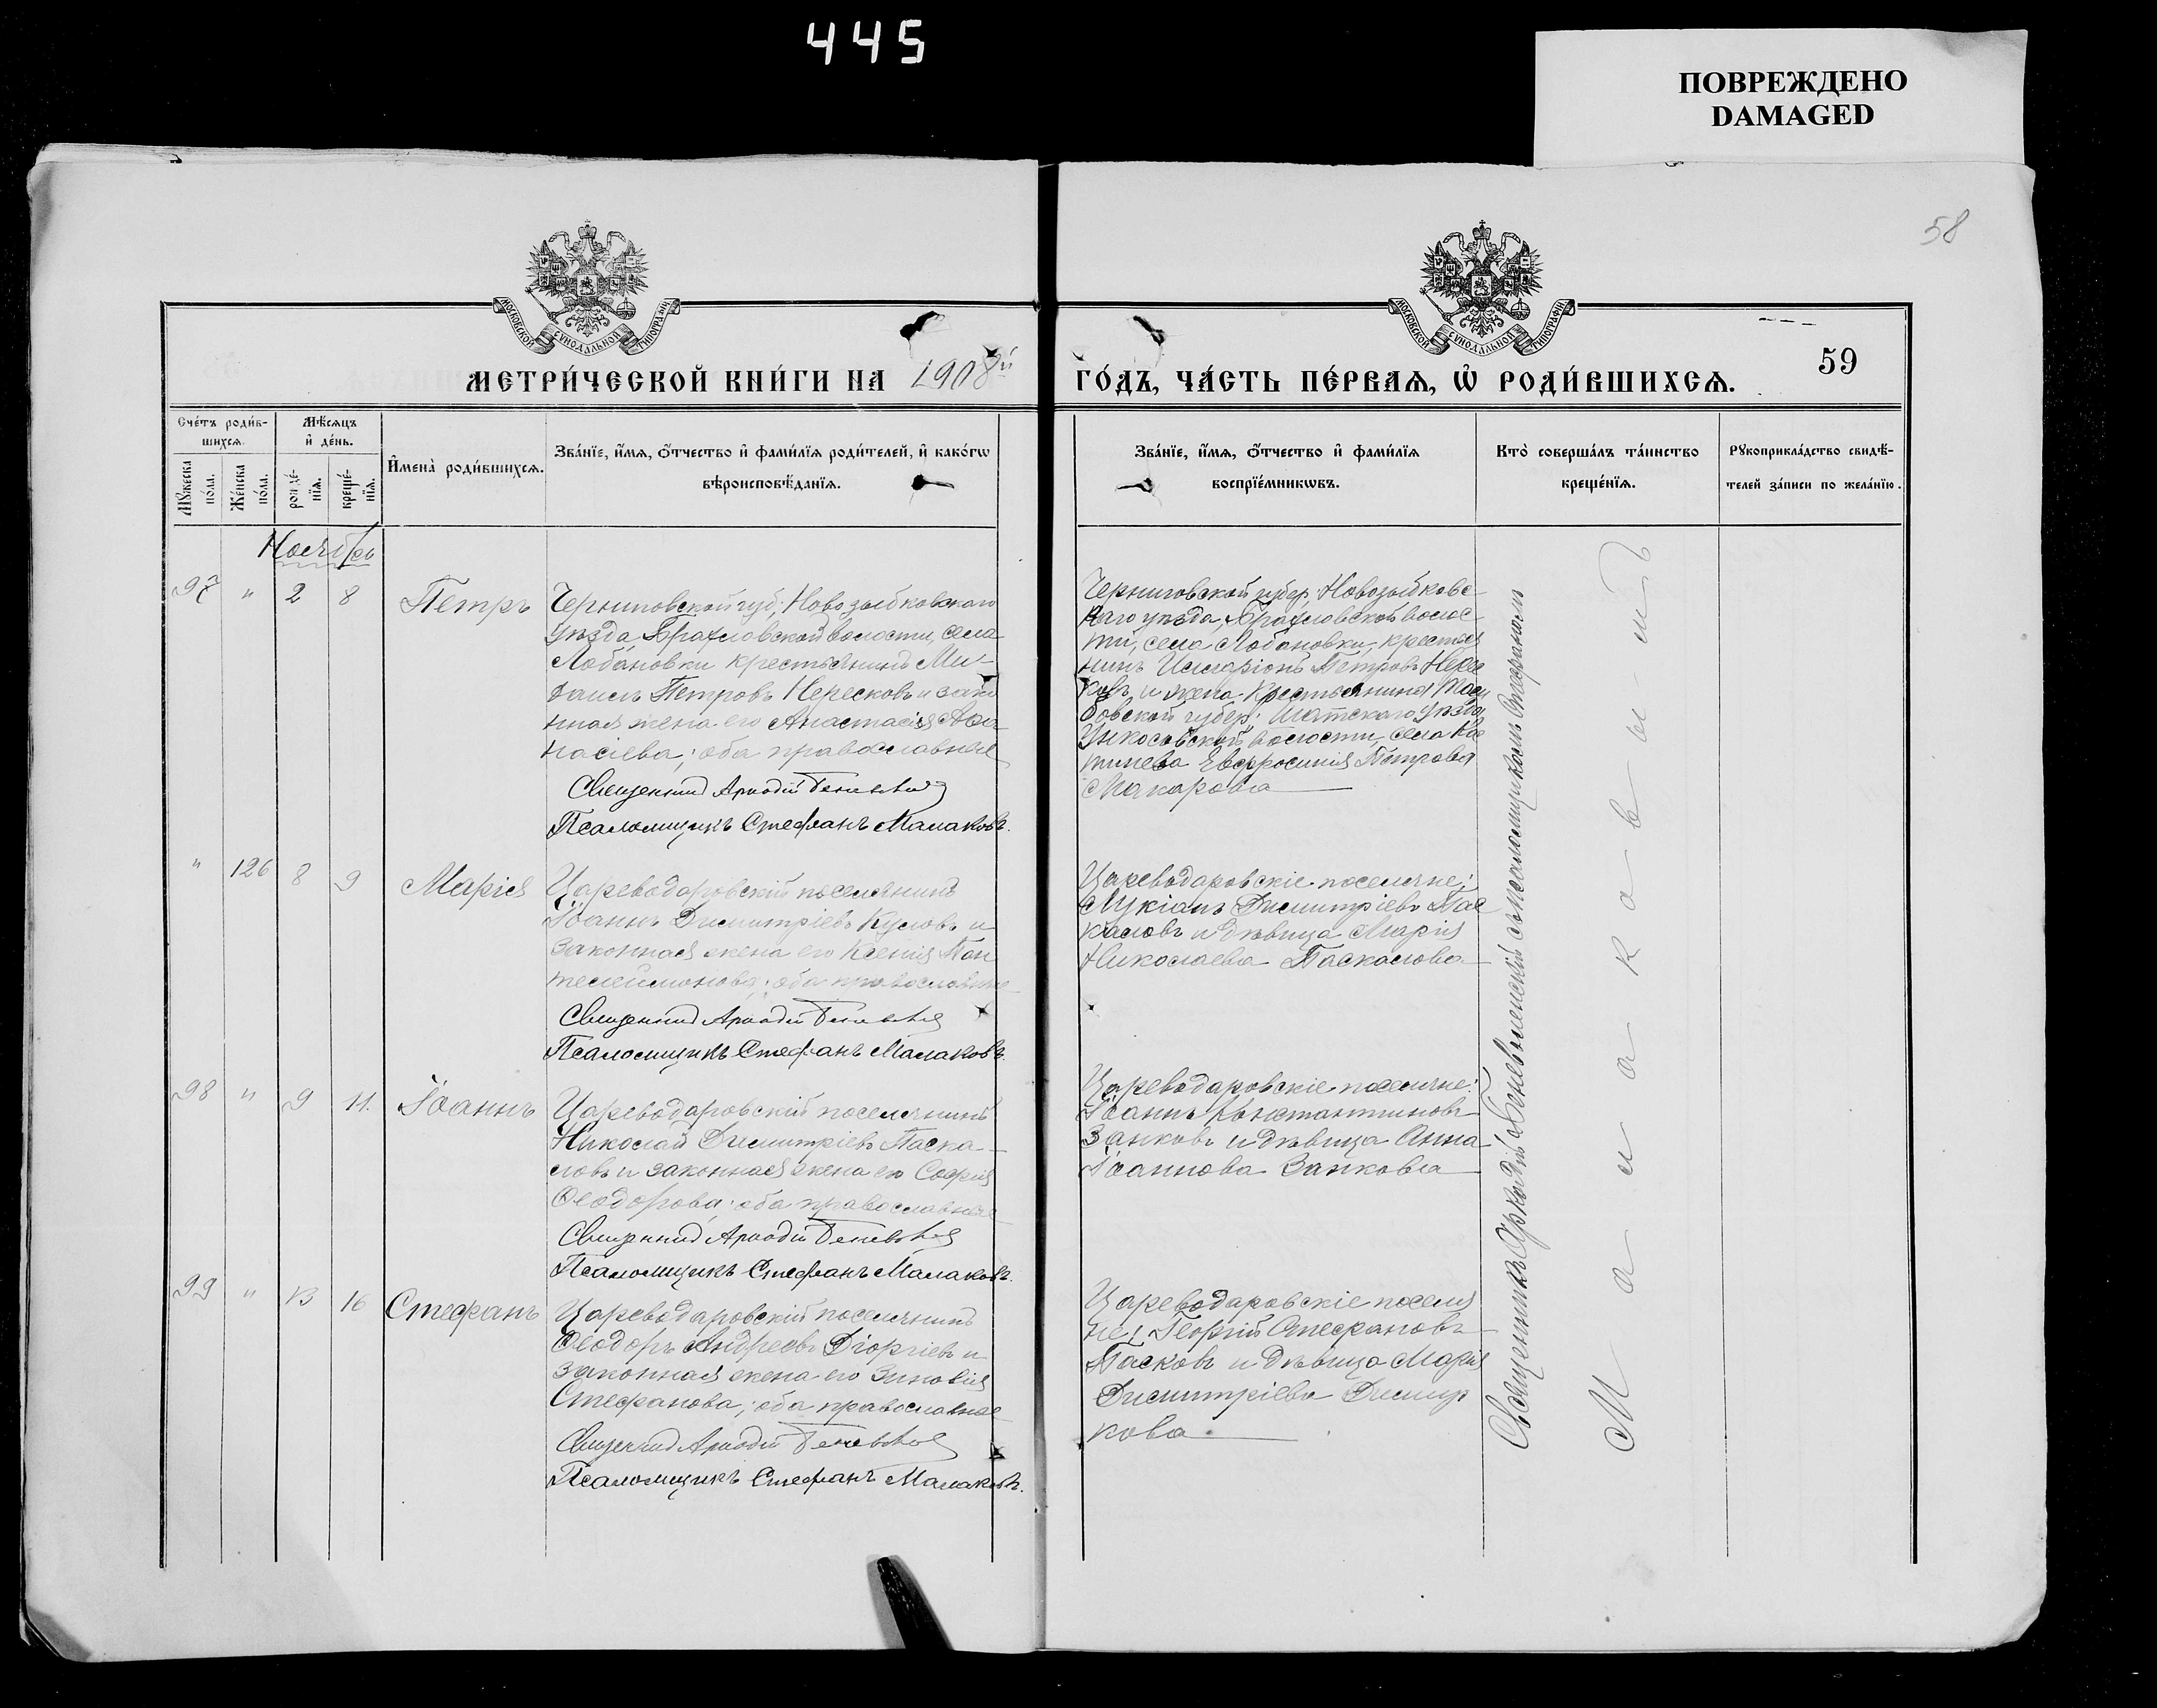 445
ПОВРЕЖДЕНО
DAMAGED
58
МОСКОВСКОЙ СУНОДАЛЬНОЙ ТИПОГРАФИИ
МОСКОВСКОЙ СУНОДАЛЬНОЙ ТИПОГРАФИИ
МЕТРИ́ЧЕСКОЙ КНИ́ГИ НА 1908й
ГО́ДЪ, ЧА́СТЬ ПЕ́РВАѦ, Ѡ҆ РОДИ́ВШИХСѦ.
59
Сче́тъ роди́вшихсѧ.
Мѣ́сѧцъ и҆ де́нь.
Мꙋ́жеска по́ла.
Же́нска по́ла.
рожде́нїѧ.
креще́нїѧ.
И҆мена̀ роди́вшихсѧ.
Зва́нїе, и҆́мѧ, ѻ҆́тчество и҆ фами́лїѧ роди́телей, и҆ како́гѡ
вѣроисповѣ́данїѧ.
Зва́нїе, и҆́мѧ, ѻ҆́тчество и҆ фами́лїѧ
воспрїе́мникѡвъ.
Кто̀ соверша́лъ та́инство
креще́нїѧ.
Рꙋкоприкла́дство свидѣ́-
телей за́писи по жела́нїю.
Ноябрь
97 " 2 8 Петръ
Черниговской губ; Новозыбковскаго
уѣзда Брахловской волости, села
Лобановки крестьянинъ Ми-
хаилъ Петровъ Нересковъ и зако
нная жена его Анастасія Аѳа
насіева; оба православные
Священникъ Аркадій
Псаломщикъ Стефанъ Малаковъ.
Черниговской губер: Новозыбковс-
каго уѣзда, Брахловской волос-
ти, села Лобановки, крестья
нинъ Иларіонъ Петровъ
и жена крестьянина Там
бовской губер; Шатскаго уѣзда
волости, села
Евфросинія Петрова
Макарова
" 126 8 9 Марія
Цареводаровскій поселянинъ
Іоаннъ Димитріевъ Куловъ и
законная жена его Ксенія Пан
телеймонова; оба православные
Священникъ Аркадій
Псаломщикъ Стефанъ Малаковъ.
Цареводаровскіе поселяне:
Лукіанъ Димитріевъ Пас
каловъ и дѣвица Марія
Николаева Паскалова
98 " 9 11. Іоаннъ
Цареводаровскій поселянинъ
Николай Димитріевъ Паска-
ловъ и законная жена его Софія
Ѳеодорова; оба православные
Священникъ Аркадій
Псаломщикъ Стефанъ Малаковъ.
Цареводаровскіе поселяне:
Іоаннъ Константиновъ
Занковъ и дѣвица Анна
Іоаннова Занкова
99 " 13 16 Стефанъ
Цареводаровскій поселянинъ
Ѳеодоръ Андреевъ Гіоргіевъ и
законная жена его Зиновія
Стефанова; оба православные
Священникъ Аркадій
Псаломщикъ Стефанъ Малаковъ.
Цареводаровскіе поселя
не; Георгій Стефановъ
Пасковъ и дѣвица Марія
Димитріева Димир
кова.
Священникъ Аркадій съ псаломщикомъ Стефаномъ
Малаковымъ